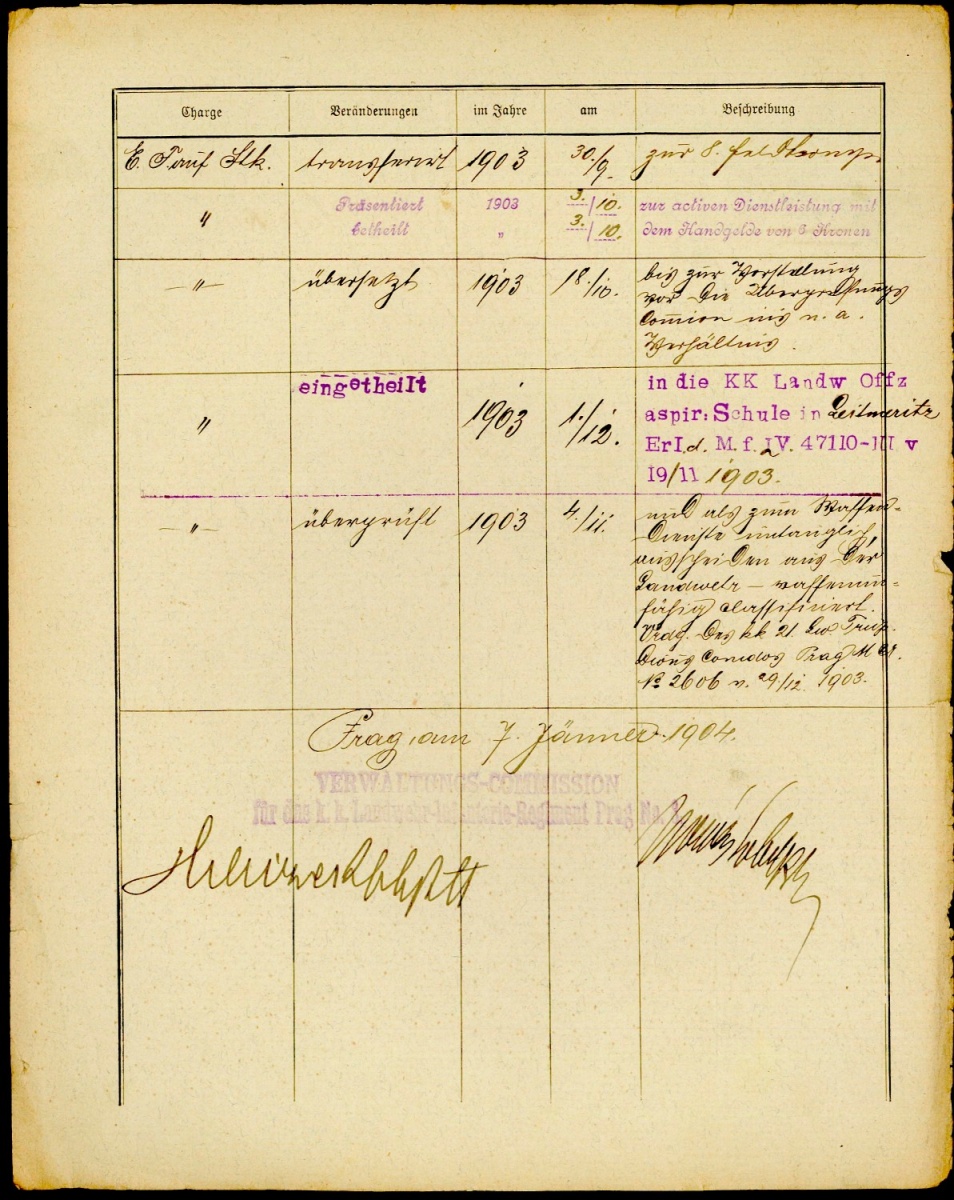 Charge Veränderungen im Jahre am Beschreibung
transferirt 1903 30./9. zur 8. Feldkomp.
" Präsentiert 1903 3./10. zur activen Dienstleistung mit
betheilt " 3./10. dem Handgelde von 6 Kronen
—"— übersetzt 1903 18./10. bis zur Vorstellung
vor die Überprüfungs
Comion ins n. a.
Verhältnis.
eingetheilt in die KK Landw Offz
" 1903 1./12. aspir: Schule in Leitmeritz
Erl. d. M. f. L. V. 47110-III v
19/11 1903.
—"— überprüft 1903 4./11. und als zum Waffen-
dienste untauglich
ausscheiden aus der
Landwehr — waffenun-
fähig classificiert.
Vrdg. des kk 21. Lw Trup.
Dions Comdos Prag M A.
№ 2606 v. 29/12 1903.
Prag, am 7. Jänner 1904.
VERWALTUNGS-COMMISSION
für das k. k. Landwehr-Infanterie-Regiment Prag No. 8.